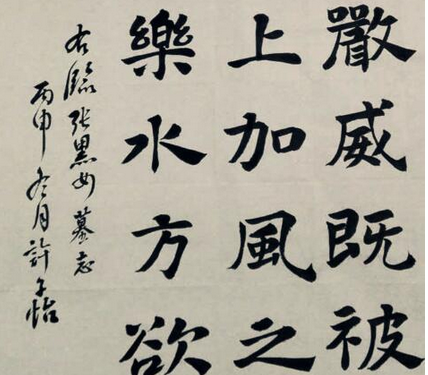 嚴威既被
上加風之
樂水方欲
右臨張黑女墓志
丙申冬月許子怡